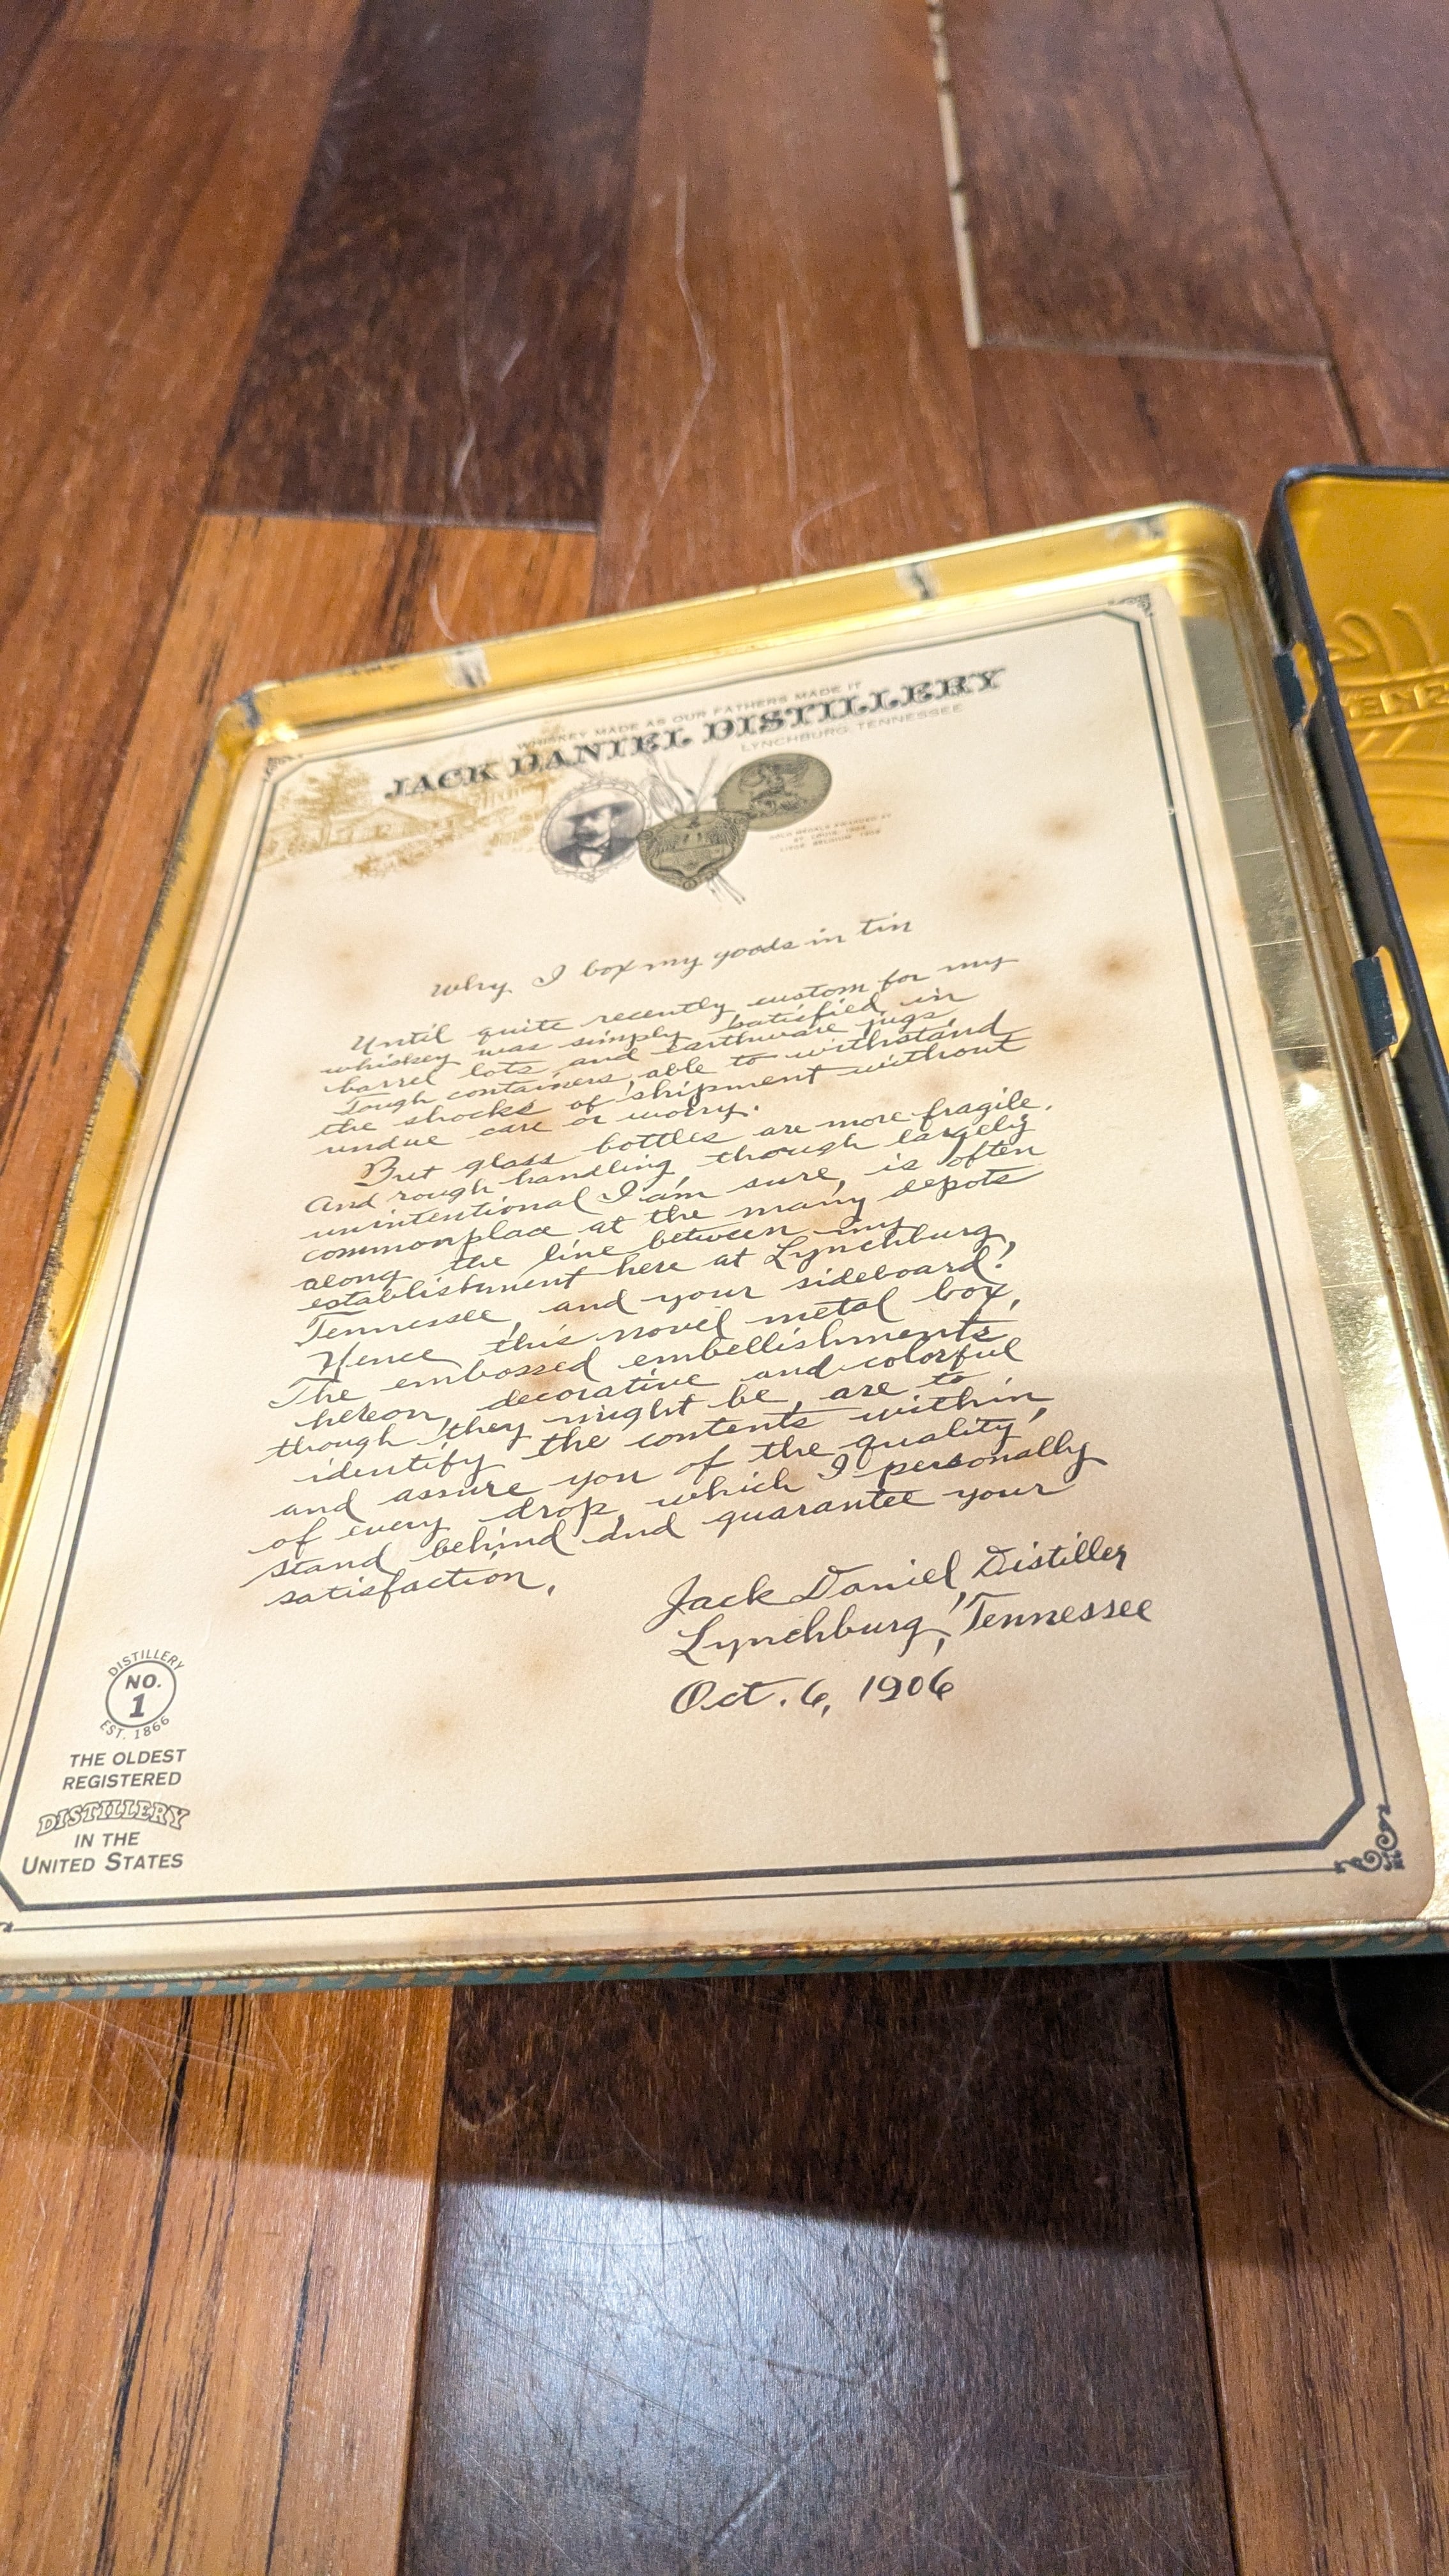 WHISKEY MADE AS OUR FATHERS MADE IT
JACK DANIEL DISTILLERY
LYNCHBURG, TENNESSEE
GOLD MEDALS AWARDED AT
ST. LOUIS, 1904
LIEGE, BELGIUM, 1905
Why I box my goods in tin
Until quite recently custom for my
whiskey was simply satisfied in
barrel lots and earthware jugs
Tough containers, able to withstand
the shocks of shipment without
undue care or worry.
But glass bottles are more fragile.
And rough handling, though largely
unintentional I am sure, is often
commonplace at the many depots
along the line between my
establishment here at Lynchburg,
Tennessee, and your sideboard!
Hence this novel metal box,
The embossed embellishments
hereon, decorative and colorful
though they might be, are to
identify the contents within,
and assure you of the quality
of every drop, which I personally
stand behind and guarantee your
satisfaction.
Jack Daniel, Distiller
Lynchburg, Tennessee
Oct. 6, 1906
DISTILLERY
NO.
1
EST. 1866
THE OLDEST
REGISTERED
DISTILLERY
IN THE
UNITED STATES